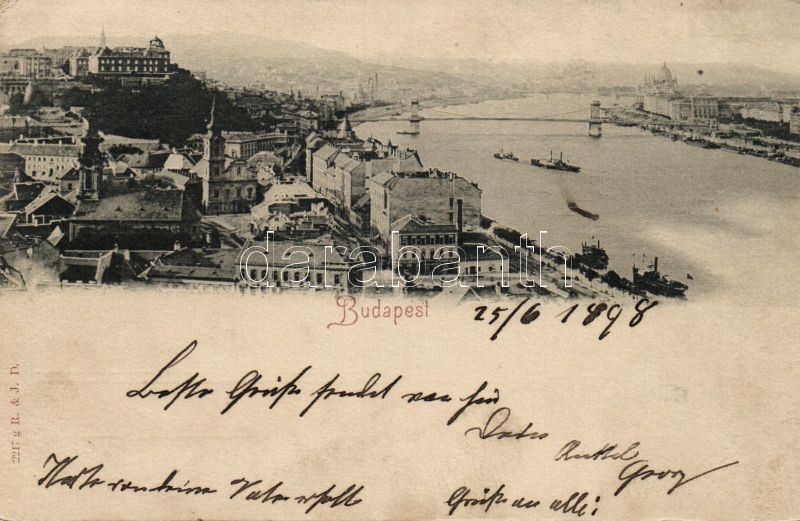 darabanth
Budapest
25/6 1898
Beste Grüße sendet von hier
Dein
Onkel
Georg
Karte von deinem Vater erhalt
Grüße an alle!
2217 g R. & J. D.